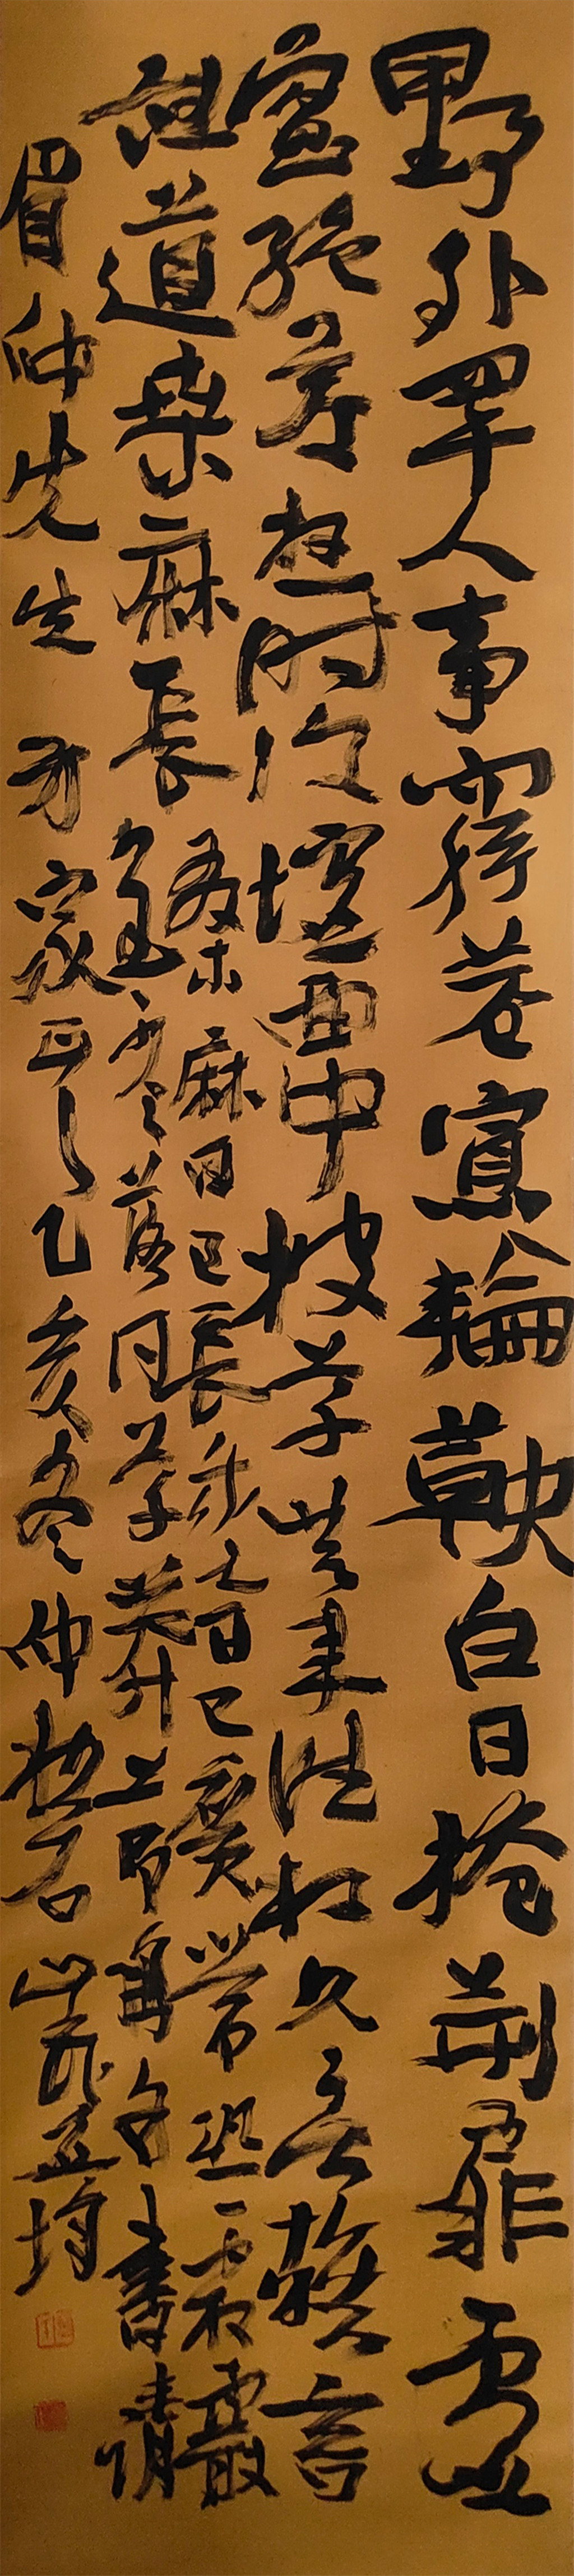 野外罕人事窮巷寡輪鞅白日掩荊扉虛
室絕塵想時復墟曲中披草共來往相見無雜言
但道桑麻長桑麻日已長我土日已廣常恐霜霰
至零落同草莽 書請
眉仲先生方家正之乙亥冬仲